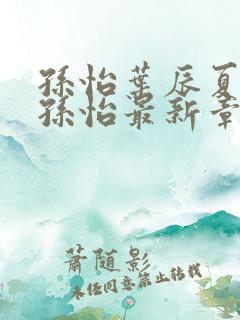 孫怡葉辰夏
孫怡最新章
蕭随影
未経同意禁止転載